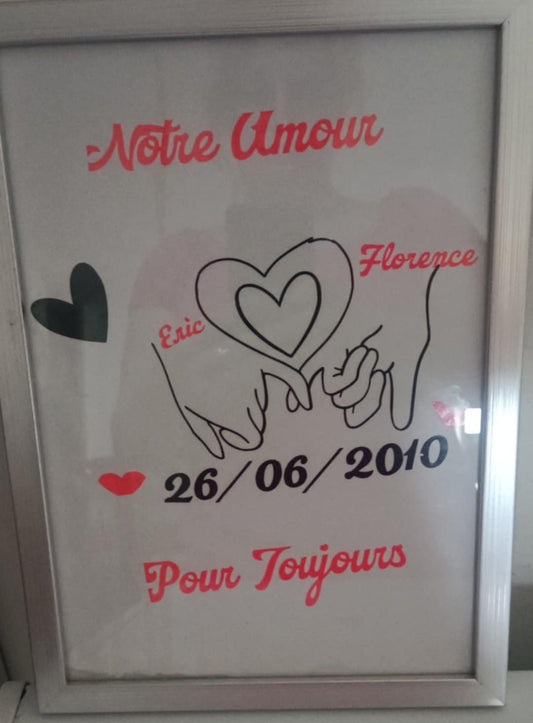 Notre Amour
Florence
Eric
26/06/2010
Pour Toujours